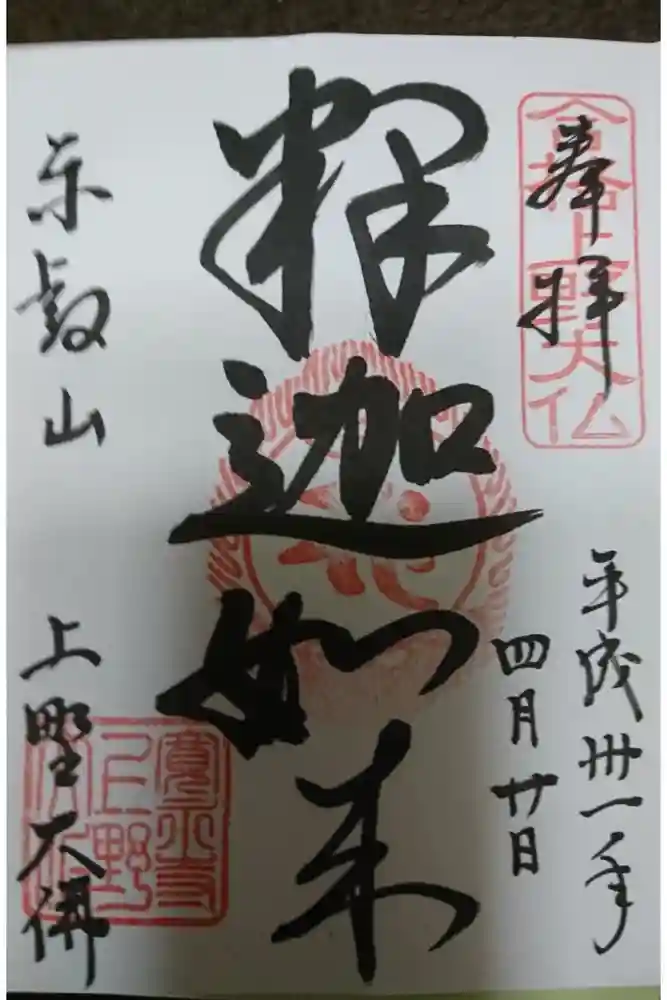 合格上野大仏
奉拝
平成卅一年
四月廿日
釋迦如来
東叡山
上野大佛
寛永寺
上野